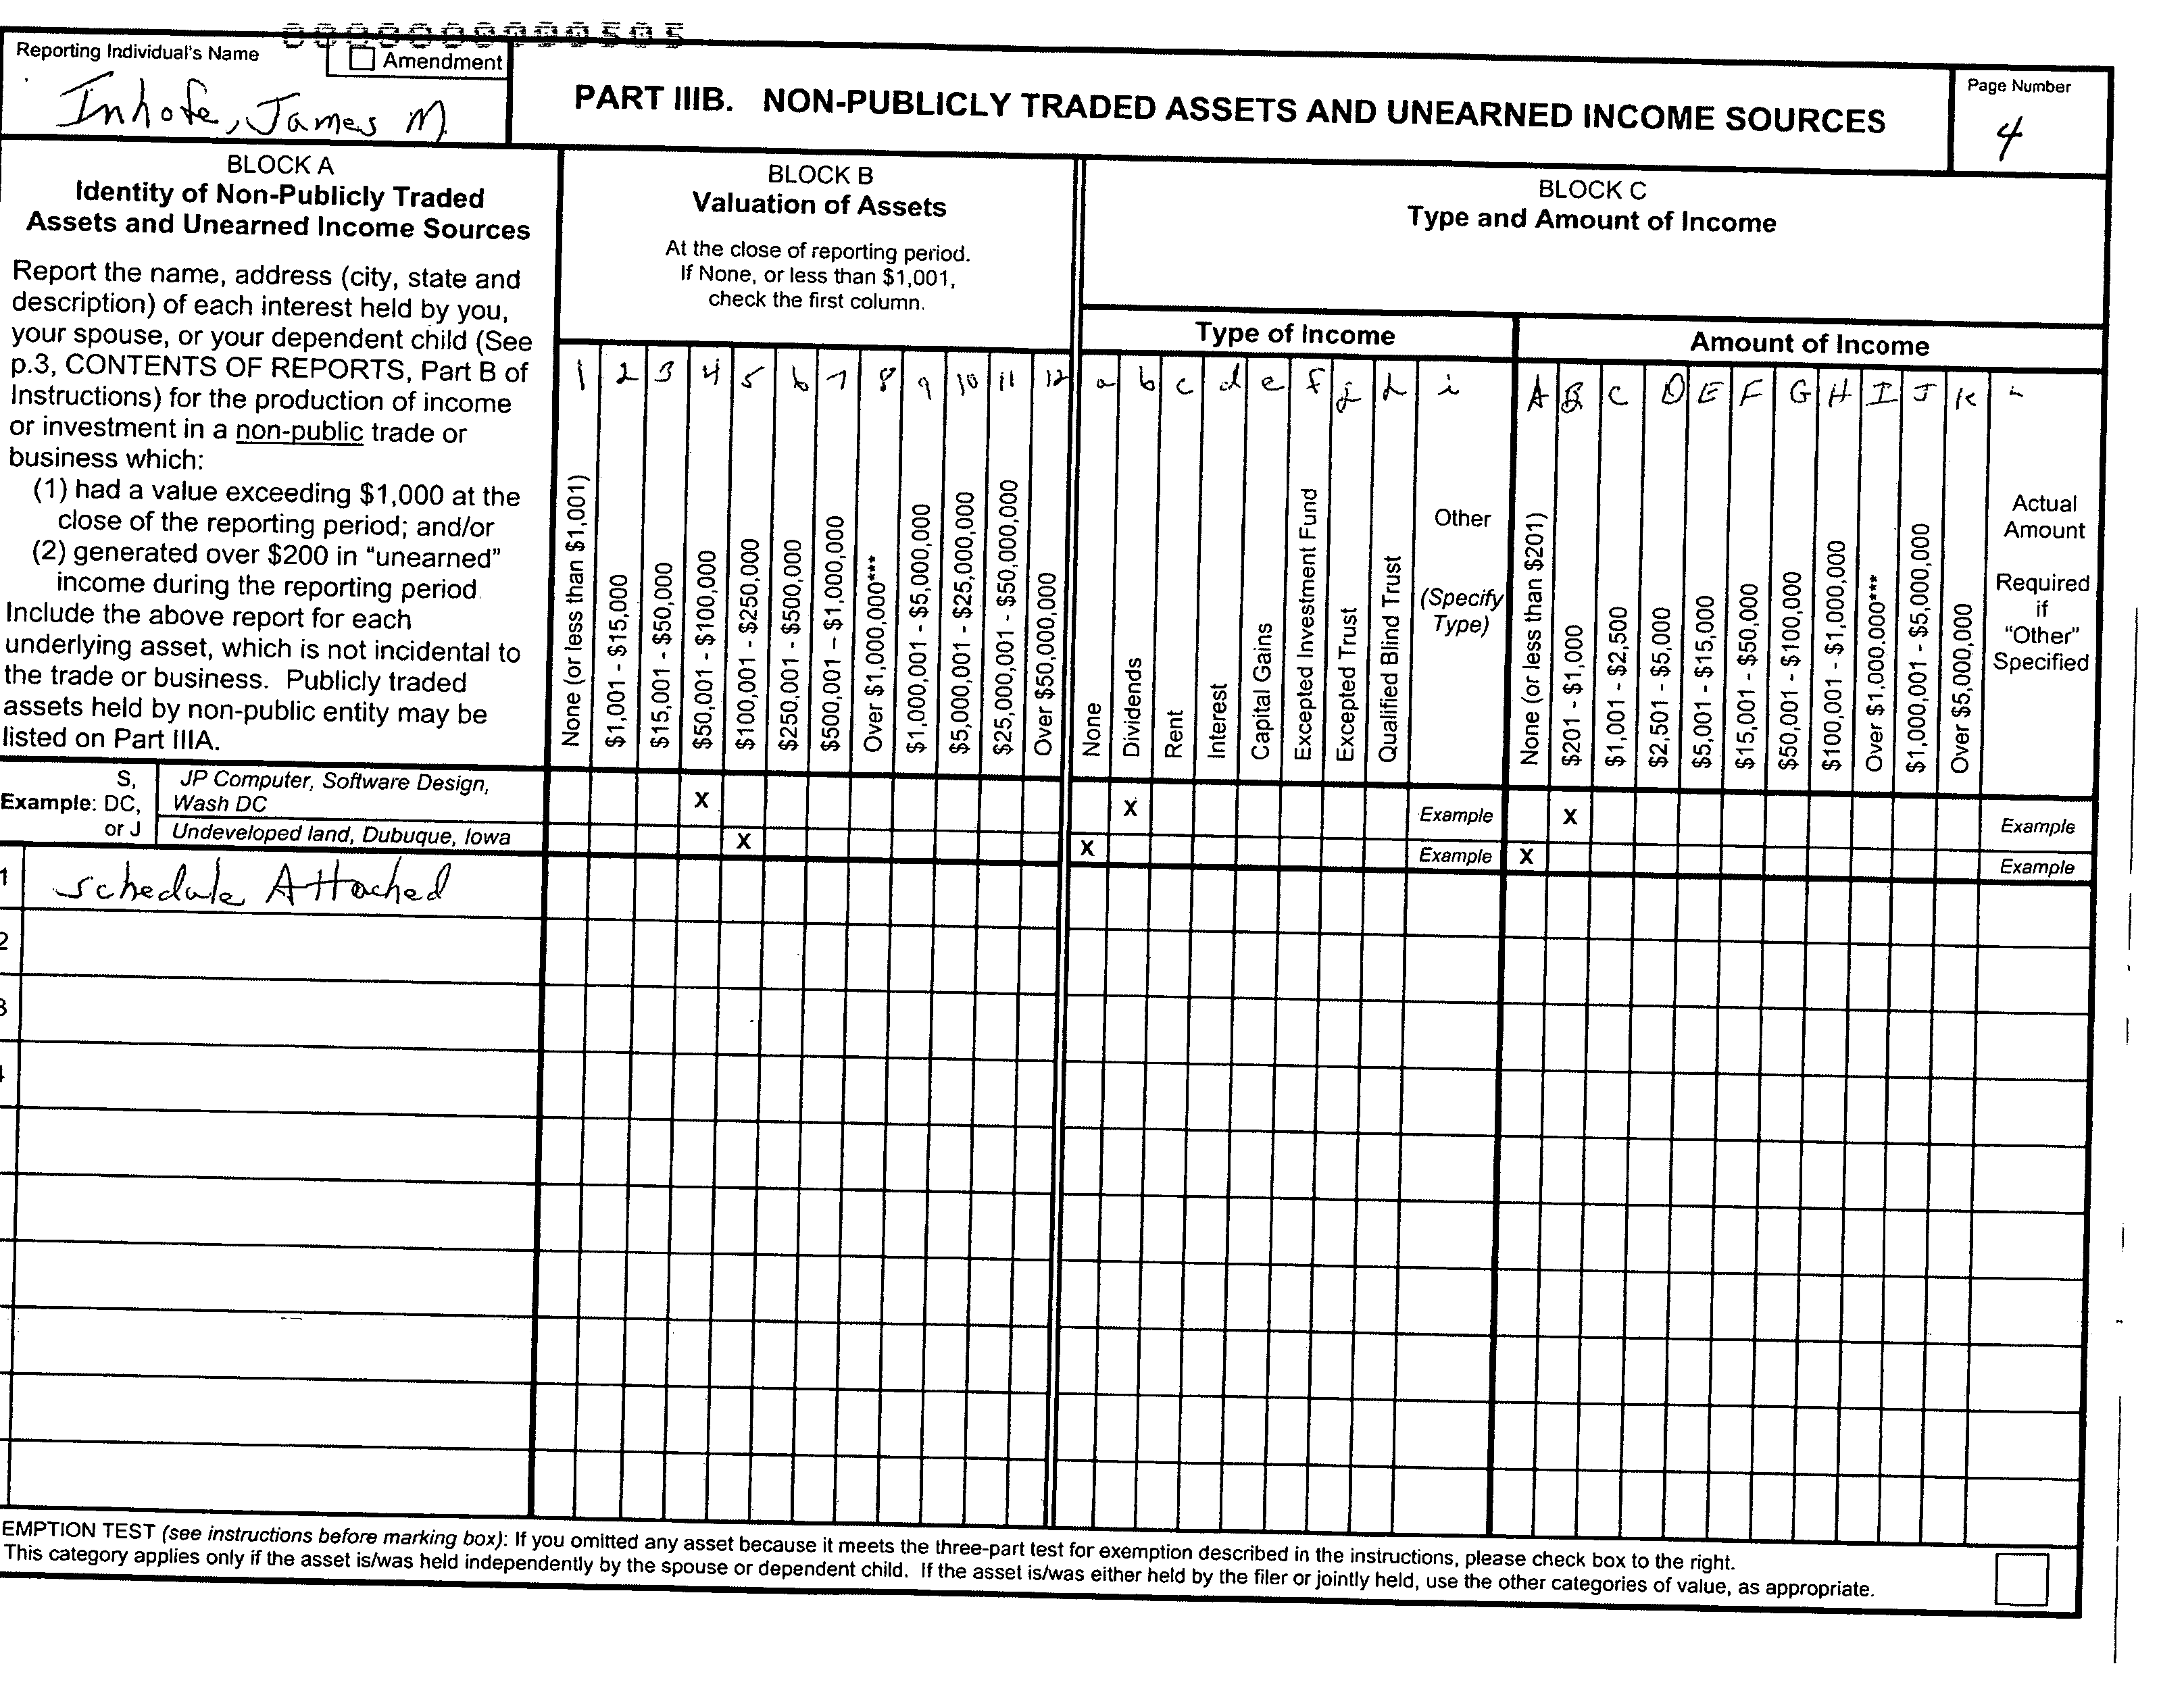 000000000505
Reporting Individual's Name
Amendment
Inhofe, James M.
PART IIIB. NON-PUBLICLY TRADED ASSETS AND UNEARNED INCOME SOURCES
Page Number
4
BLOCK A
Identity of Non-Publicly Traded
Assets and Unearned Income Sources
Report the name, address (city, state and
description) of each interest held by you,
your spouse, or your dependent child (See
p.3, CONTENTS OF REPORTS, Part B of
Instructions) for the production of income
or investment in a non-public trade or
business which:
(1) had a value exceeding $1,000 at the
close of the reporting period; and/or
(2) generated over $200 in "unearned"
income during the reporting period.
Include the above report for each
underlying asset, which is not incidental to
the trade or business. Publicly traded
assets held by non-public entity may be
listed on Part IIIA.
BLOCK B
Valuation of Assets
At the close of reporting period.
If None, or less than $1,001,
check the first column.
1 2 3 4 5 6 7 8 9 10 11 12
None (or less than $1,001)
$1,001 - $15,000
$15,001 - $50,000
$50,001 - $100,000
$100,001 - $250,000
$250,001 - $500,000
$500,001 – $1,000,000
Over $1,000,000***
$1,000,001 - $5,000,000
$5,000,001 - $25,000,000
$25,000,001 - $50,000,000
Over $50,000,000
BLOCK C
Type and Amount of Income
Type of Income
a b c d e f g h i
None
Dividends
Rent
Interest
Capital Gains
Excepted Investment Fund
Excepted Trust
Qualified Blind Trust
Other
(Specify
Type)
Amount of Income
A B C D E F G H I J K L
None (or less than $201)
$201 - $1,000
$1,001 - $2,500
$2,501 - $5,000
$5,001 - $15,000
$15,001 - $50,000
$50,001 - $100,000
$100,001 - $1,000,000
Over $1,000,000***
$1,000,001 - $5,000,000
Over $5,000,000
Actual
Amount
Required
if
"Other"
Specified
S,
Example: DC,
or J
JP Computer, Software Design,
Wash DC
X X Example X Example
Undeveloped land, Dubuque, Iowa X X Example X Example
1 Schedule Attached
2
3
EMPTION TEST (see instructions before marking box): If you omitted any asset because it meets the three-part test for exemption described in the instructions, please check box to the right.
This category applies only if the asset is/was held independently by the spouse or dependent child. If the asset is/was either held by the filer or jointly held, use the other categories of value, as appropriate.